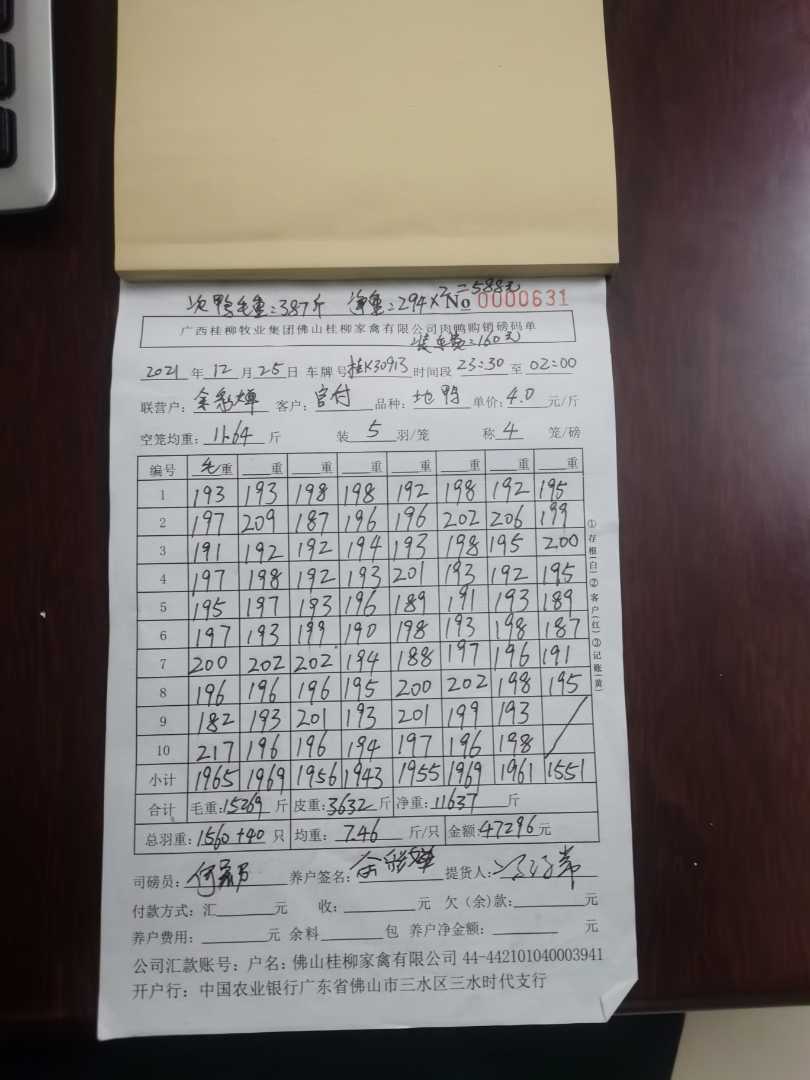 次鸭毛重:387斤 净重:294×2=588元
No 0000631
广西桂柳牧业集团佛山桂柳家禽有限公司肉鸭购销磅码单
装车费:160元
2021年12月25日 车牌号:桂K30913 时间段 23:30 至 02:00
联营户: 客户:官付 品种:地鸭 单价:4.0元/斤
空笼均重:11.64斤 装5羽/笼 称4笼/磅
编号 毛重 重 重 重 重 重 重 重
1 193 193 198 198 192 198 192 195
2 197 209 187 196 196 202 206 199
3 191 192 192 194 193 198 195 200
4 197 198 192 193 201 193 192 195
5 195 197 193 196 189 191 193 189
6 197 193 199 190 198 193 198 187
7 200 202 202 194 188 197 196 191
8 196 196 196 195 200 202 198 195
9 182 193 201 193 201 199 193
10 217 196 196 194 197 196 198
小计 1965 1969 1956 1943 1955 1969 1961 1551
合计 毛重:15269斤 皮重:3632斤 净重:11637斤
总羽重:1560+40只 均重:7.46斤/只 金额:47296元
司磅员: 养户签名: 提货人:
付款方式:汇 元 收: 元 欠(余)款: 元
养户费用: 元 余料 包 养户净金额: 元
公司汇款账号:户名:佛山桂柳家禽有限公司 44-442101040003941
开户行:中国农业银行广东省佛山市三水区三水时代支行
①存根(白)②客户(红)③记账(黄)